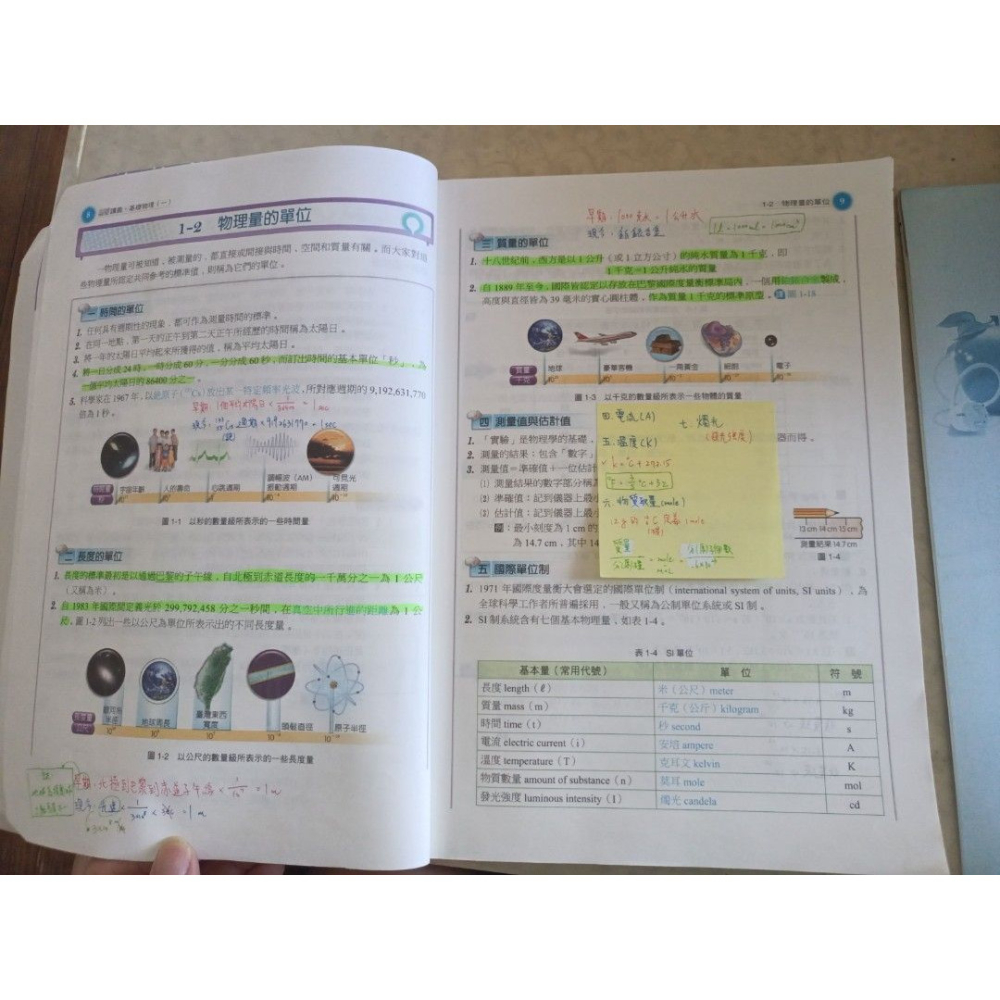 8
1-2 物理量的單位
一物理量可被知道、被測量的,都直接或間接與時間、空間和質量有關。而大家對這
些物理量所認定共同參考的標準值,則稱為它們的單位。
一 時間的單位
1. 任何具有週期性的現象,都可作為測量時間的標準。
2. 在同一地點,第一天的正午到第二天正午所經歷的時間稱為太陽日。
3. 將一年的太陽日平均起來所獲得的值,稱為平均太陽日。
4. 將一日分成 24 時,一時分成 60 分,一分分成 60 秒,而訂出時間的基本單位「秒」,為
一個平均太陽日的 86400 分之一。
5. 科學家在 1967 年,以銫原子 Cs 放出某一特定頻率光波,所對應週期的 9,192,631,770
倍為 1 秒。
宇宙年齡
人的壽命
心跳週期
調幅波(AM)
振動週期
可見光
週期
圖 1-1 以秒的數量級所表示的一些時間量
二 長度的單位
1. 長度的標準最初是以通過巴黎的子午線,自北極到赤道長度的一千萬分之一為 1 公尺
(又稱為米)。
2. 自 1983 年國際間定義光於 299,792,458 分之一秒間,在真空中所行進的距離為 1 公
尺。圖 1-2 列出一些以公尺為單位所表示出的不同長度量。
銀河系
半徑
地球周長
臺灣東西
寬度
頭髮直徑
原子半徑
圖 1-2 以公尺的數量級所表示的一些長度量
1-2 物理量的單位 9
三 質量的單位
1. 十八世紀前,西方是以 1 公升(或 1 立方公寸)的純水質量為 1 千克,即
1 千克=1 公升純水的質量
2. 自 1889 年至今,國際皆認定以存放在巴黎國際度量衡標準局內,一個用製成,
高度與直徑皆為 39 毫米的實心圓柱體,作為質量 1 千克的標準原器。
數量級
千克
地球
豪華客機
細胞
電子
圖 1-3 以千克的數量級所表示一些物體的質量
四 測量值與估計值
1. 「實驗」是物理學的基礎,
器而得。
2. 測量的結果:包含「數字」
3. 測量值=準確值+一位估計
⑴ 測量結果的數字部分稱為
⑵ 準確值:記到儀器上最小
⑶ 估計值:記到儀器上最小
:最小刻度為 1 cm 的
為 14.7 cm,其中 14
13 cm 14 cm 15 cm
測量結果 14.7 cm
圖 1-4
四. 電流(A)
七. 燭光
(發光強度)
五. 溫度(K)
六. 物質數量(mole)
五 國際單位制
1. 1971 年國際度量衡大會選定的國際單位制(international system of units, SI units),為
全球科學工作者所普遍採用,一般又稱為公制單位系統或 SI 制。
2. SI 制系統含有七個基本物理量,如表 1-4。
表 1-4 SI 單位
基本量(常用代號) 單 位 符 號
長度 length(ℓ) 米(公尺)meter m
質量 mass(m) 千克(公斤)kilogram kg
時間 time(t) 秒 second s
電流 electric current(i) 安培 ampere A
溫度 temperature(T) 克耳文 kelvin K
物質數量 amount of substance(n) 莫耳 mole mol
發光強度 luminous intensity(I) 燭光 candela cd